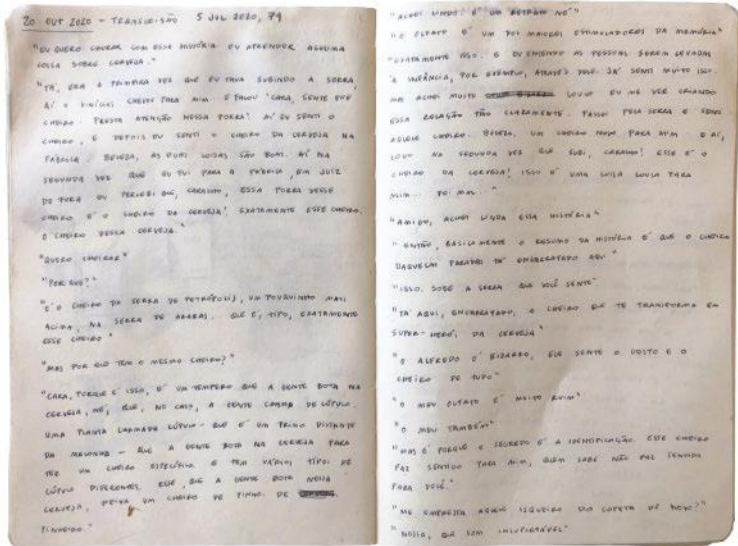 20 OUT 2020 - TRANSCRISÃO 5 JUL 2020, 79
"EU QUERO CHORAR COM ESSA HISTÓRIA EU APRENDER ALGUMA
COISA SOBRE CERVEJA."
"TÁ, ERA A PRIMEIRA VEZ QUE EU TAVA SUBINDO A SERRA,
AÍ O VINÍCIUS CHEGOU PARA MIM E FALOU 'CARA, SENTE ESSE
CHEIRO. PRESTA ATENÇÃO NESSA PORRA! AÍ EU SENTI O
CHEIRO, E DEPOIS EU SENTI O CHEIRO DA CERVEJA NA
FÁBRICA. BELEZA, AS DUAS COISAS SÃO BOAS. AÍ NA
SEGUNDA VEZ QUE EU FUI PARA A FÁBRICA, EM JUIZ
DE FORA EU PERCEBI QUE, CARALHO, ESSA PORRA DESSE
CHEIRO É O CHEIRO DA CERVEJA! EXATAMENTE ESSE CHEIRO.
O CHEIRO DESSA CERVEJA."
"QUERO CHEIRAR"
"POR QUE?"
"É O CHEIRO DA SERRA DE PETRÓPOLIS, UM POUQUINHO MAIS
ACIMA, NA SERRA DE ARARAS. QUE É, TIPO, EXATAMENTE
ESSE CHEIRO"
"MAS POR QUE TEM O MESMO CHEIRO?"
"CARA, PORQUE É ISSO, É UM TEMPERO QUE A GENTE BOTA NA
CERVEJA, NÉ, QUE, NO CASO, A GENTE CHAMA DE LÚPULO.
UMA PLANTA CHAMADA LÚPULO - QUE É UM PRIMO DISTANTE
DA MACONHA - QUE A GENTE BOTA NA CERVEJA PARA
TER UM CHEIRO ESPECÍFICO E TEM VÁRIOS TIPOS DE
LÚPULO DIFERENTES. ESSE, QUE A GENTE BOTA NESSA
CERVEJA, DEIXA UM CHEIRO DE PINHO. DE
PINHEIRO."
"ACHEI LINDO. É UM RETRATO NÉ"
"O OLFATO É UM DOS MAIORES ESTIMULADORES DA MEMÓRIA"
"EXATAMENTE ISSO. E EU ENTENDO AS PESSOAS SEREM LEVADAS
À INFÂNCIA, POR EXEMPLO, ATRAVÉS DELE. JÁ SENTI MUITO ISSO.
MAS ACHEI MUITO LOUCO EU ME VER CRIANDO
ESSA RELAÇÃO TÃO CLARAMENTE. PASSEI PELA SERRA E SENTI
AQUELE CHEIRO. BELEZA, UM CHEIRO NOVO PARA MIM E AÍ,
LOGO NA SEGUNDA VEZ QUE SUBI, CARALHO! ESSE É O
CHEIRO DA CERVEJA! ISSO É UMA COISA LOUCA PARA
MIM... FOI MAL..."
"AMIGO, ACHEI LINDA ESSA HISTÓRIA"
"ENTÃO, BASICAMENTE O RESUMO DA HISTÓRIA É QUE O CHEIRO
DAQUELAS PARADAS TÁ ENGARRAFADO AQUI"
"ISSO. SOBE A SERRA QUE VOCÊ SENTE"
"TÁ AQUI, ENGARRAFADO, O CHEIRO QUE TE TRANSFORMA EM
SUPER-HERÓI DA CERVEJA"
"O ALFREDO É BIZARRO, ELE SENTE O GOSTO E O
CHEIRO DE TUDO"
"O MEU OLFATO É MUITO RUIM"
"O MEU TAMBÉM"
"MAS É PORQUE O SEGREDO É A IDENTIFICAÇÃO. ESSE CHEIRO
FAZ SENTIDO PARA MIM, QUEM SABE NÃO FAZ SENTIDO
PARA VOCÊ."
"ME EMPRESTA AQUELE ISQUEIRO DO CAPETA DE NOVO?"
"NOSSA, QUE SOM INSUPORTÁVEL"